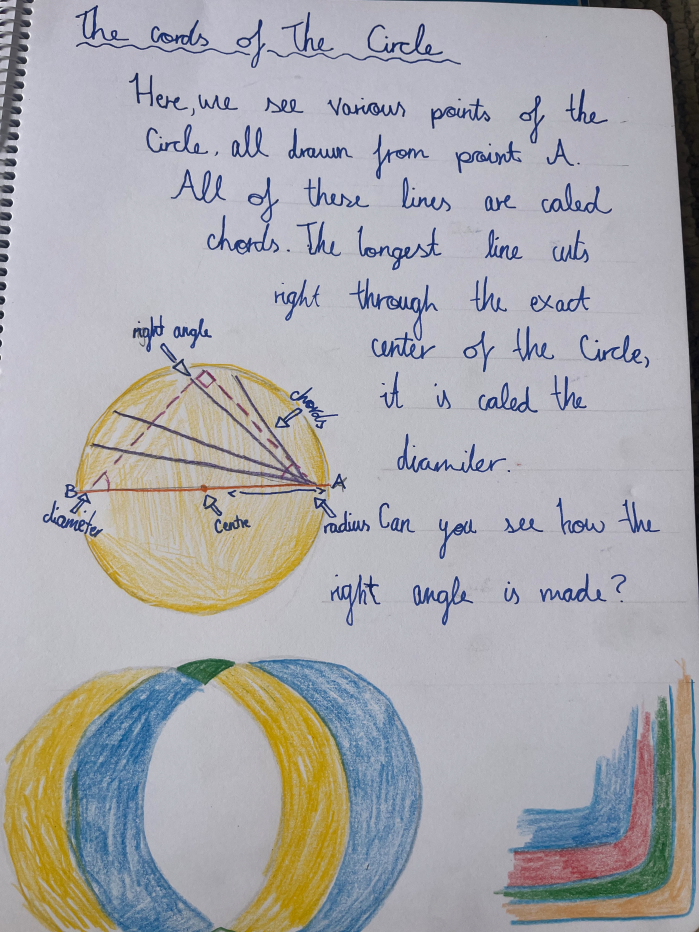 The cords of The Circle
Here, we see various points of the
Circle, all drawn from point A.
All of these lines are caled
chords. The longest line cuts
right through the exact
center of the Circle,
it is caled the
diamiter.
Can you see how the
right angle is made?
right angle
chords
A
B
diameter
Centre
radius